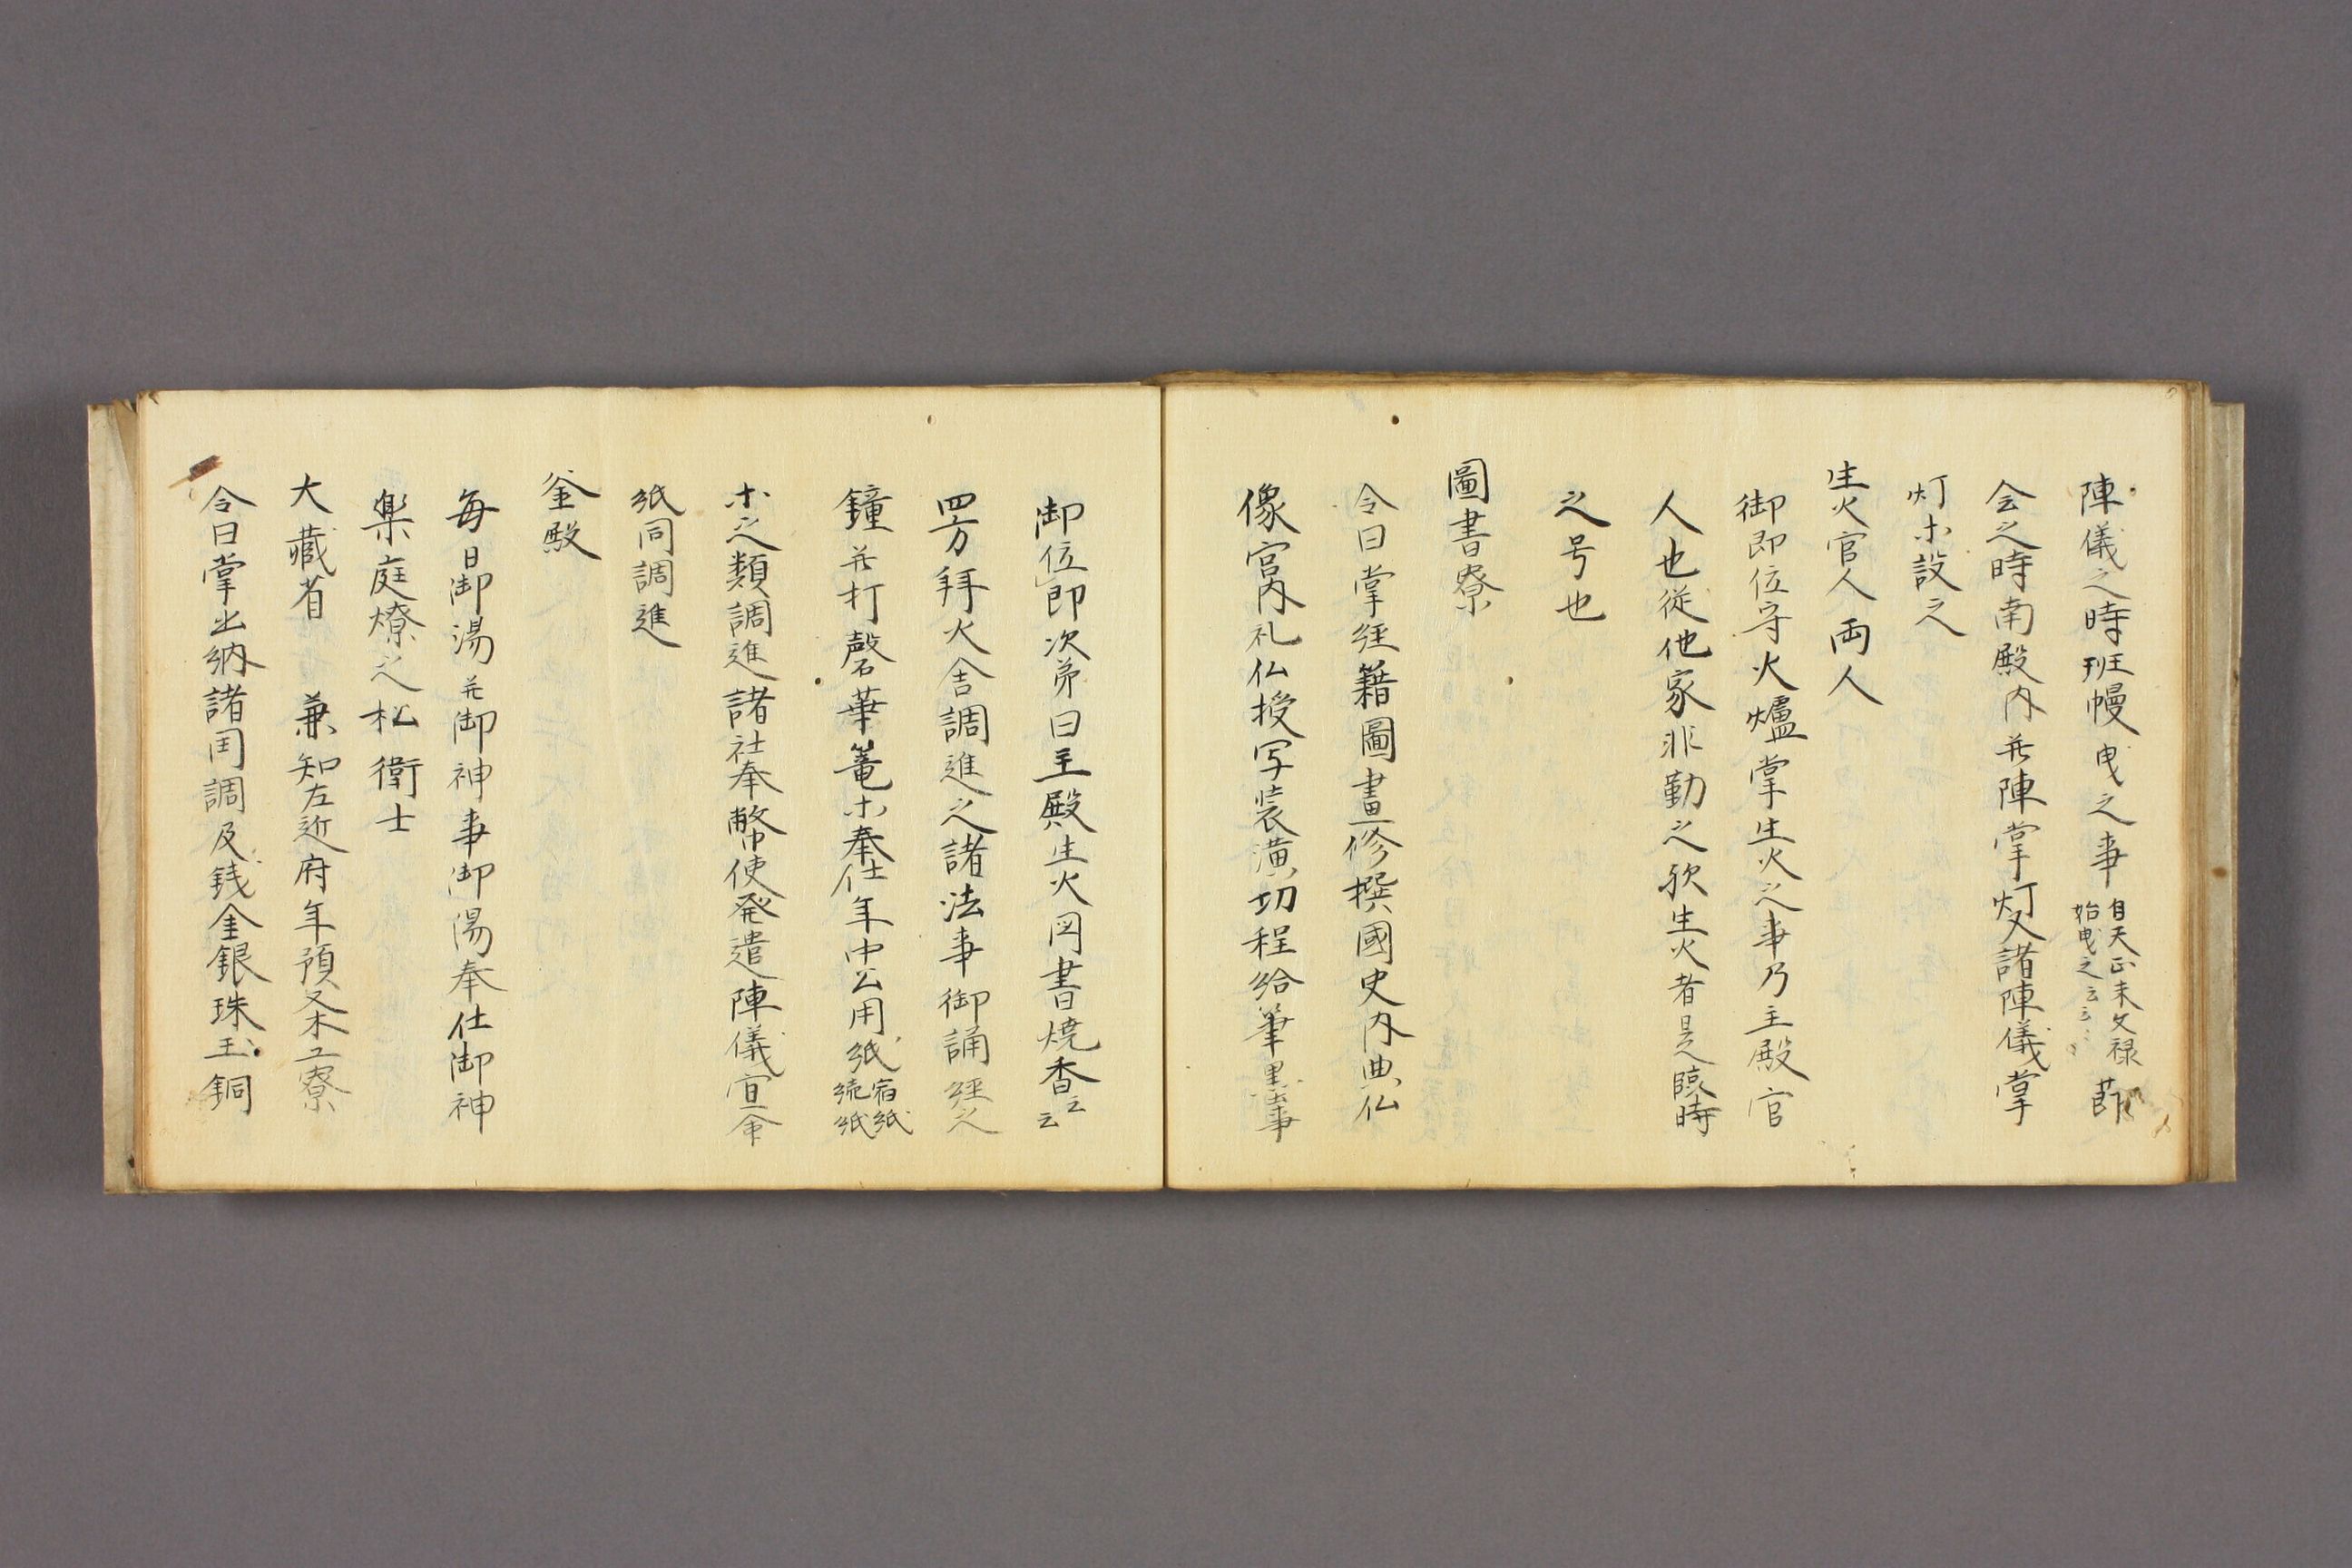 陣儀之時班幔曳之事 自天正末文禄始曳之云云 節
会之時南殿内并陣掌灯又諸陣儀掌
灯ホ設之
生火官人両人
御即位守火爐掌生火之事乃主殿官
人也従他家非勤之歟生火者是臨時
之号也
圖書寮
令曰掌経籍圖畫修撰國史内典仏
像宮内礼仏挍写装潢功程給筆墨事
御位即次第曰主殿生火図書焼香云云
四方拜火舎調進之諸法事御誦経之
鐘并打磬華篭ホ奉仕年中公用紙 宿紙続紙
ホ之類調進諸社奉幣使発遣陣儀宣命
紙同調進
釜殿
毎日御湯并御神事御湯奉仕御神
楽庭燎之松衛士
大藏省 兼知左近府年預木工寮
令曰掌出納諸国調及銭金銀珠玉銅